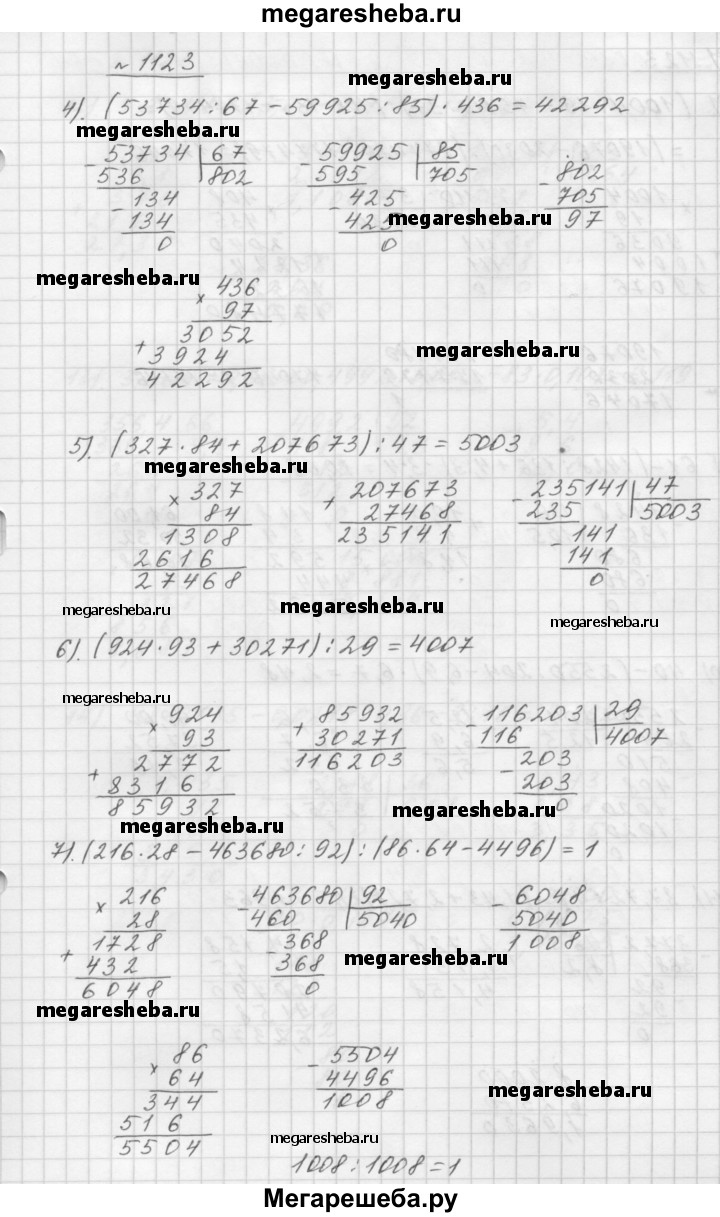 megaresheba.ru
№ 1123
megaresheba.ru
4). (53734:67-59925:85)·436=42292
megaresheba.ru
- 53734 | 67 - 59925 | 85
536 802 595 705 - 802
- 134 - 425 705
134 425 97
0 0
megaresheba.ru
megaresheba.ru
× 436
97
+ 3052
3924
42292
megaresheba.ru
5). (327·84+207673):47=5003
megaresheba.ru
× 327 + 207673 - 235141 | 47
84 27468 235 5003
1308 235141 - 141
2616 141
27468 0
megaresheba.ru megaresheba.ru megaresheba.ru
6). (924·93+30271):29=4007
megaresheba.ru
× 924 + 85932 - 116203 | 29
93 30271 116 4007
+ 2772 116203 - 203
8316 203
85932 0
megaresheba.ru megaresheba.ru
7). (216·28-463680:92):(86·64-4496)=1
× 216 - 463680 | 92 - 6048
28 460 5040 5040
+ 1728 - 368 1008
432 368
6048 0
megaresheba.ru
megaresheba.ru
× 86 - 5504
64 4496
344 1008
516
5504
megaresheba.ru
megaresheba.ru
1008:1008=1
Мегарешеба.ру